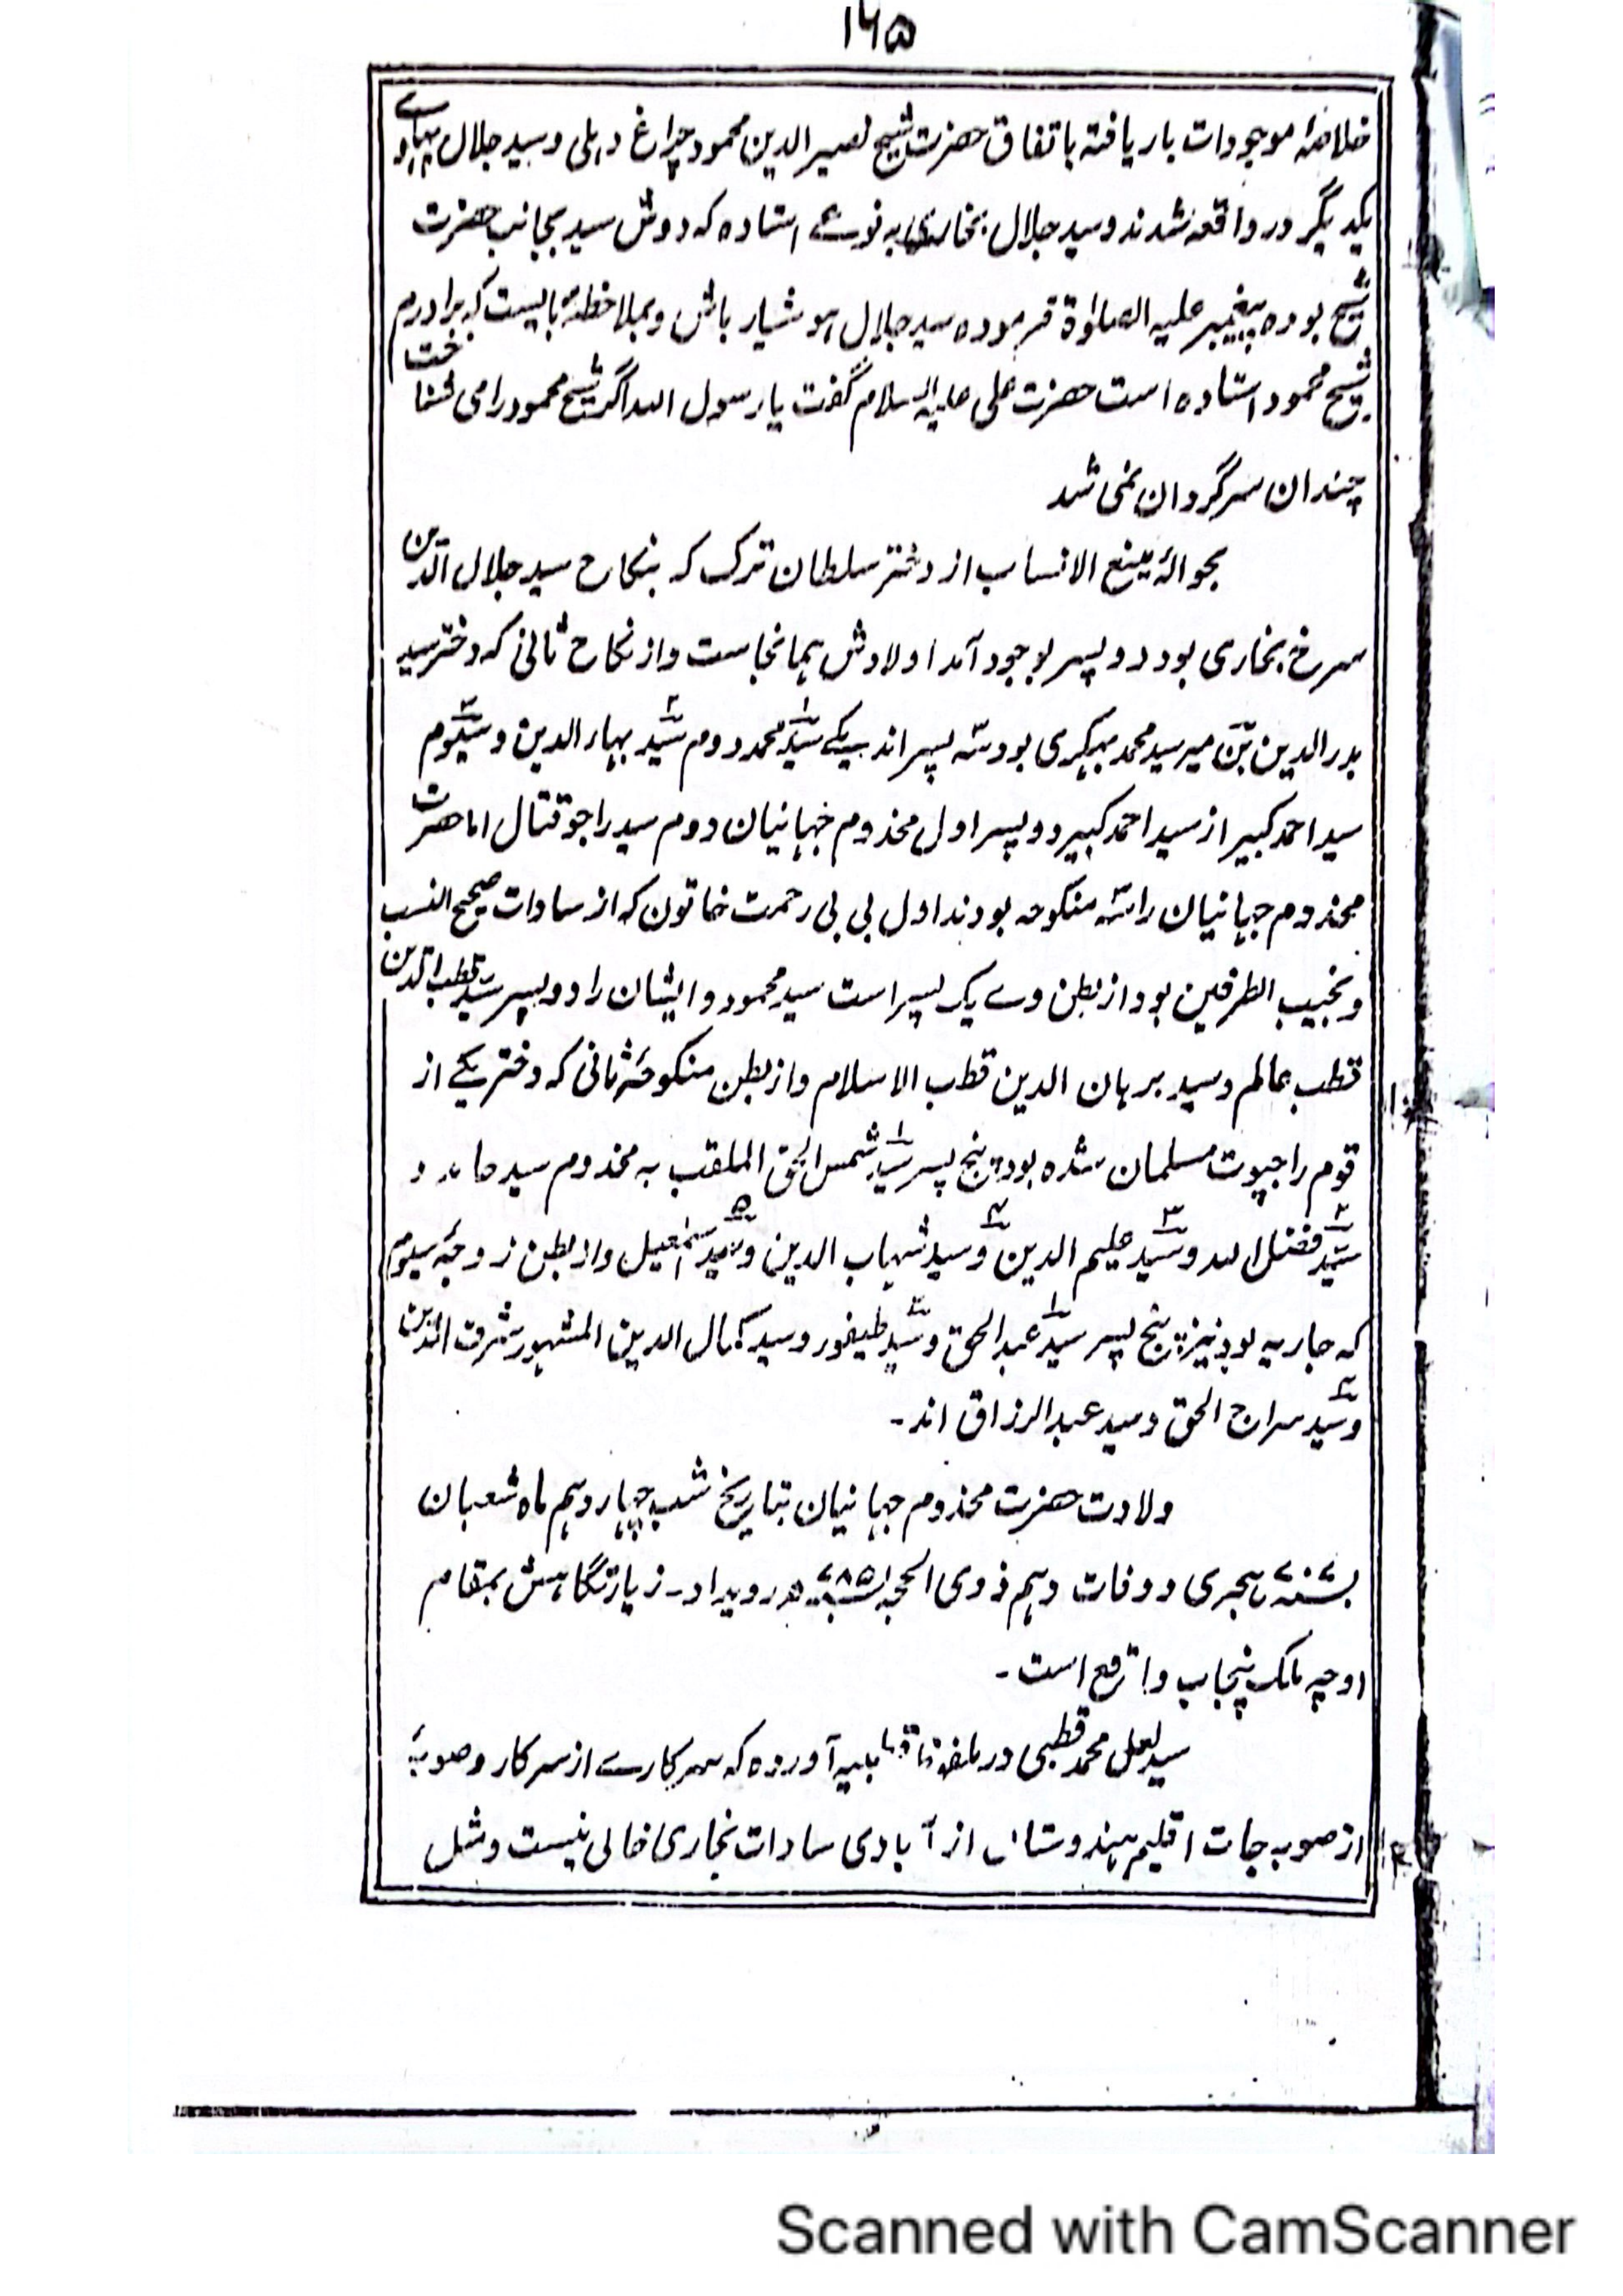 ۱۶۵
خلاصۂ موجودات بار یافتہ باتفاق حضرت شیخ نصیر الدین محمود چراغ دہلی و سید جلال پہلوے
یکدیگر در واقعہ شدند و سید جلال بخاری بہ نوعے استادہ کہ دوش سید بجانب حضرت
شیخ بودہ پیغمبر علیہ الصلوٰۃ فرمودہ سید جلال ہوشیار باش و بملاحظہ بایست کہ برادرم
شیخ محمود استادہ است حضرت علی علیہ السلام گفت یا رسول اللہ اگر شیخ محمود را می شناخت
چندان سرگردان نمی شد
بحوالۂ منبع الانساب از دختر سلطان ترک کہ بنکاح سید جلال الدین
سرخ بخاری بود دو پسر بوجود آمد اولادش ہمانجاست و از نکاح ثانی کہ دختر سید
بدر الدین بن میر سید محمد بہکری بود سہ پسر اند یکے سید محمد دوم سید بہاء الدین و سیوم
سید احمد کبیر از سید احمد کبیر دو پسر اول مخدوم جہانیان دوم سید راجو قتال اما حضرت
مخدوم جہانیان را سہ منکوحہ بودند اول بی بی رحمت خاتون کہ از سادات صحیح النسب
و نجیب الطرفین بود از بطن وے یک پسر است سید محمود و ایشان را دو پسر سید قطب الدین
قطب عالم و سید برہان الدین قطب الاسلام و از بطن منکوحۂ ثانی کہ دختر یکے از
قوم راجپوت مسلمان شدہ بود پنج پسر ۱ سید شمس الحق الملقب بہ مخدوم سید حامد و
۲ سید فضل اللہ و ۳ سید علیم الدین و ۴ سید شہاب الدین و ۵ سید اسمٰعیل و از بطن زوجۂ سیوم
کہ جاریہ بود نیز پنج پسر ۱ سید عبد الحق و ۲ سید طیفور و سید کمال الدین المشہور شرف الدین
و ۴ سید سراج الحق و سید عبد الرزاق اند۔
ولادت حضرت مخدوم جہانیان بتاریخ شب چہاردہم ماہ شعبان
۷۰۷ ہجری و وفات دہم ذوی الحجہ ۷۸۵ھ رویداد۔ زیارتگاہش بمقام
اوچہ ملک پنجاب واقع است۔
سید لعل محمد قطبی در آوردہ کہ سرکارے از سرکار و صوبۂ
از صوبہ جات اقلیم ہندوستان از آبادی سادات بخاری خالی نیست و مثل
Scanned with CamScanner